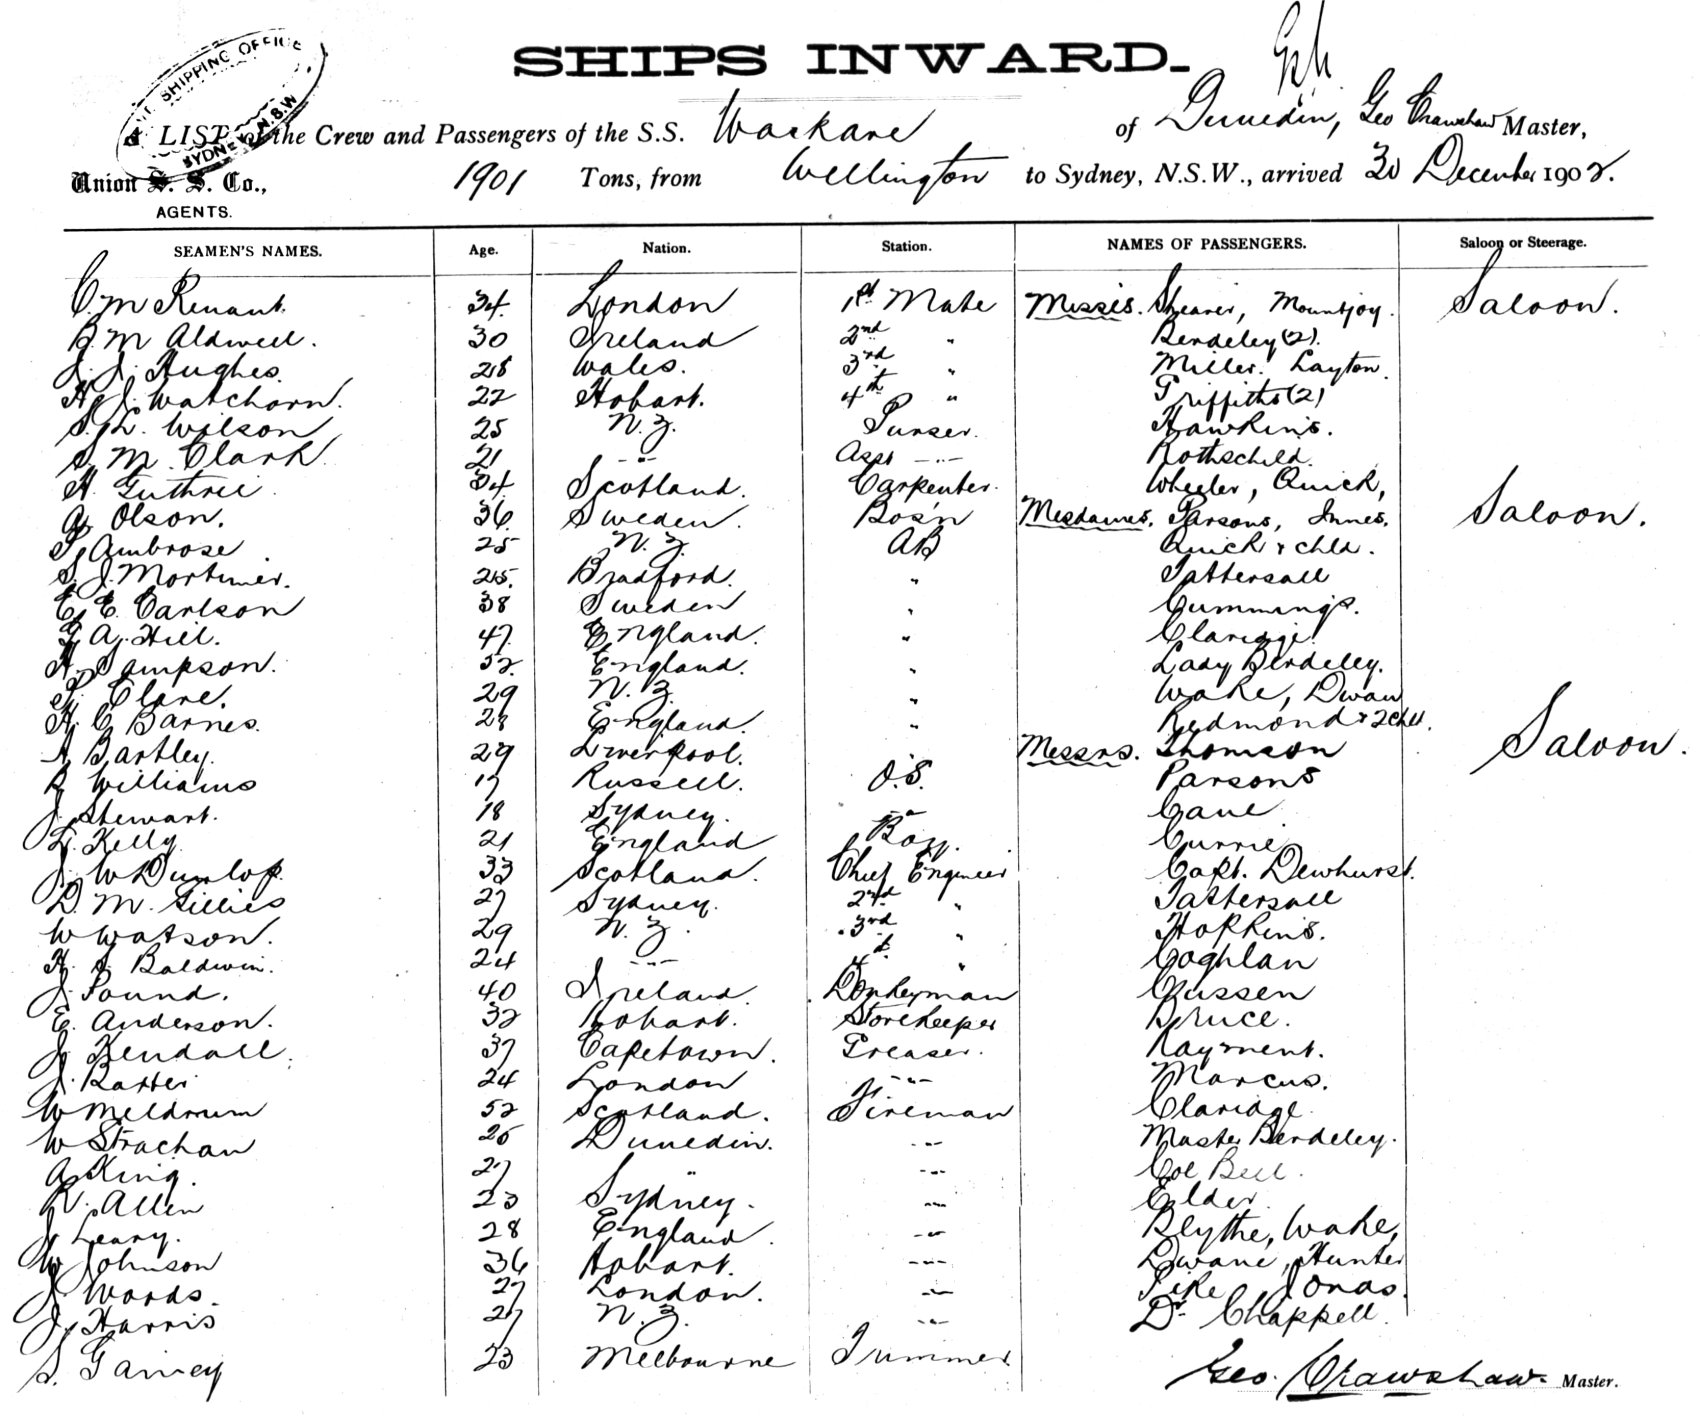 SHIPS INWARD.
SHIPPING OFFICE
SYDNEY N.S.W
A LIST of the Crew and Passengers of the S.S. Waikare of Dunedin, Geo Crawshaw Master,
Union S. S. Co., 1901 Tons, from Wellington to Sydney, N.S.W., arrived 30 December 1902.
AGENTS.
SEAMEN'S NAMES. Age. Nation. Station. NAMES OF PASSENGERS. Saloon or Steerage.
C. M 34 London 1st Mate Misses. Shearer, Mountjoy. Saloon.
B. M Aldwell. 30 Ireland 2nd " Berdeley (2).
J. J. Hughes. 28 Wales. 3rd " Miller. Layton.
H. J. Watchorn. 22 Hobart. 4th " Griffiths (2)
S. L. Wilson 25 N.Z. Purser. Hawkins.
S. M. Clark 21 -"- Asst -"- Rothschild.
H. Guthrie 34 Scotland. Carpenter. Wheeler, Quick,
A Olson. 36. Sweden. Bos'n Mesdames. Parsons, Innes. Saloon.
P. Ambrose 25 N.Z. AB Quick & chld.
S. J. Mortimer. 25. Bradford. " Tattersall
C. E. Carlson 38 Sweden " Cummings.
G. A. Hill. 47. England. " Claridge.
H. Sampson. 52. England. " Lady Berdeley.
Clare. 29 N.Z. " Wake, Dwan
H. C Barnes. 28 England. " Redmond & 2 chld.
A Bartley. 29 Liverpool. Messrs. Thomson Saloon.
R Williams 17 Russell. O.S. Parsons
J. Stewart. 18 Sydney. -"- Cane
L. Kelly 21 England Boy. Currie
J. W Dunlop. 33 Scotland. Chief Engineer Capt. Dewhurst.
D. M. Gillies 27 Sydney. 2nd " Tattersall
W Watson. 29 N.Z. 3rd " Hopkins.
H. J. Baldwin. 24 -"- 4th " Coghlan
J. Pound. 40 Ireland. Donkeyman Cussen
E. Anderson. 32 Hobart. Storekeeper Bruce.
J. Kendall. 37 Capetown. Greaser. Rayment.
J. 24 London -"- Marcus.
W Meldrum 52 Scotland. Fireman Claridge.
W Strachan 26 Dunedin. -"- Master Berdeley.
A. King. 27 " -"- Col Bell.
R. Allen 23 Sydney. -"- Elder
J Leary. 28 England. -"- Blythe, Wake,
W Johnson 36 Hobart. -"- Dwane, Hunter
J Woods. 27 London. -"- Pike Jonas.
J. Harris 27 N.Z. -"- Dr. Chappell.
S. Gainey 23 Melbourne Trimmer.
Geo. Crawshaw. Master.